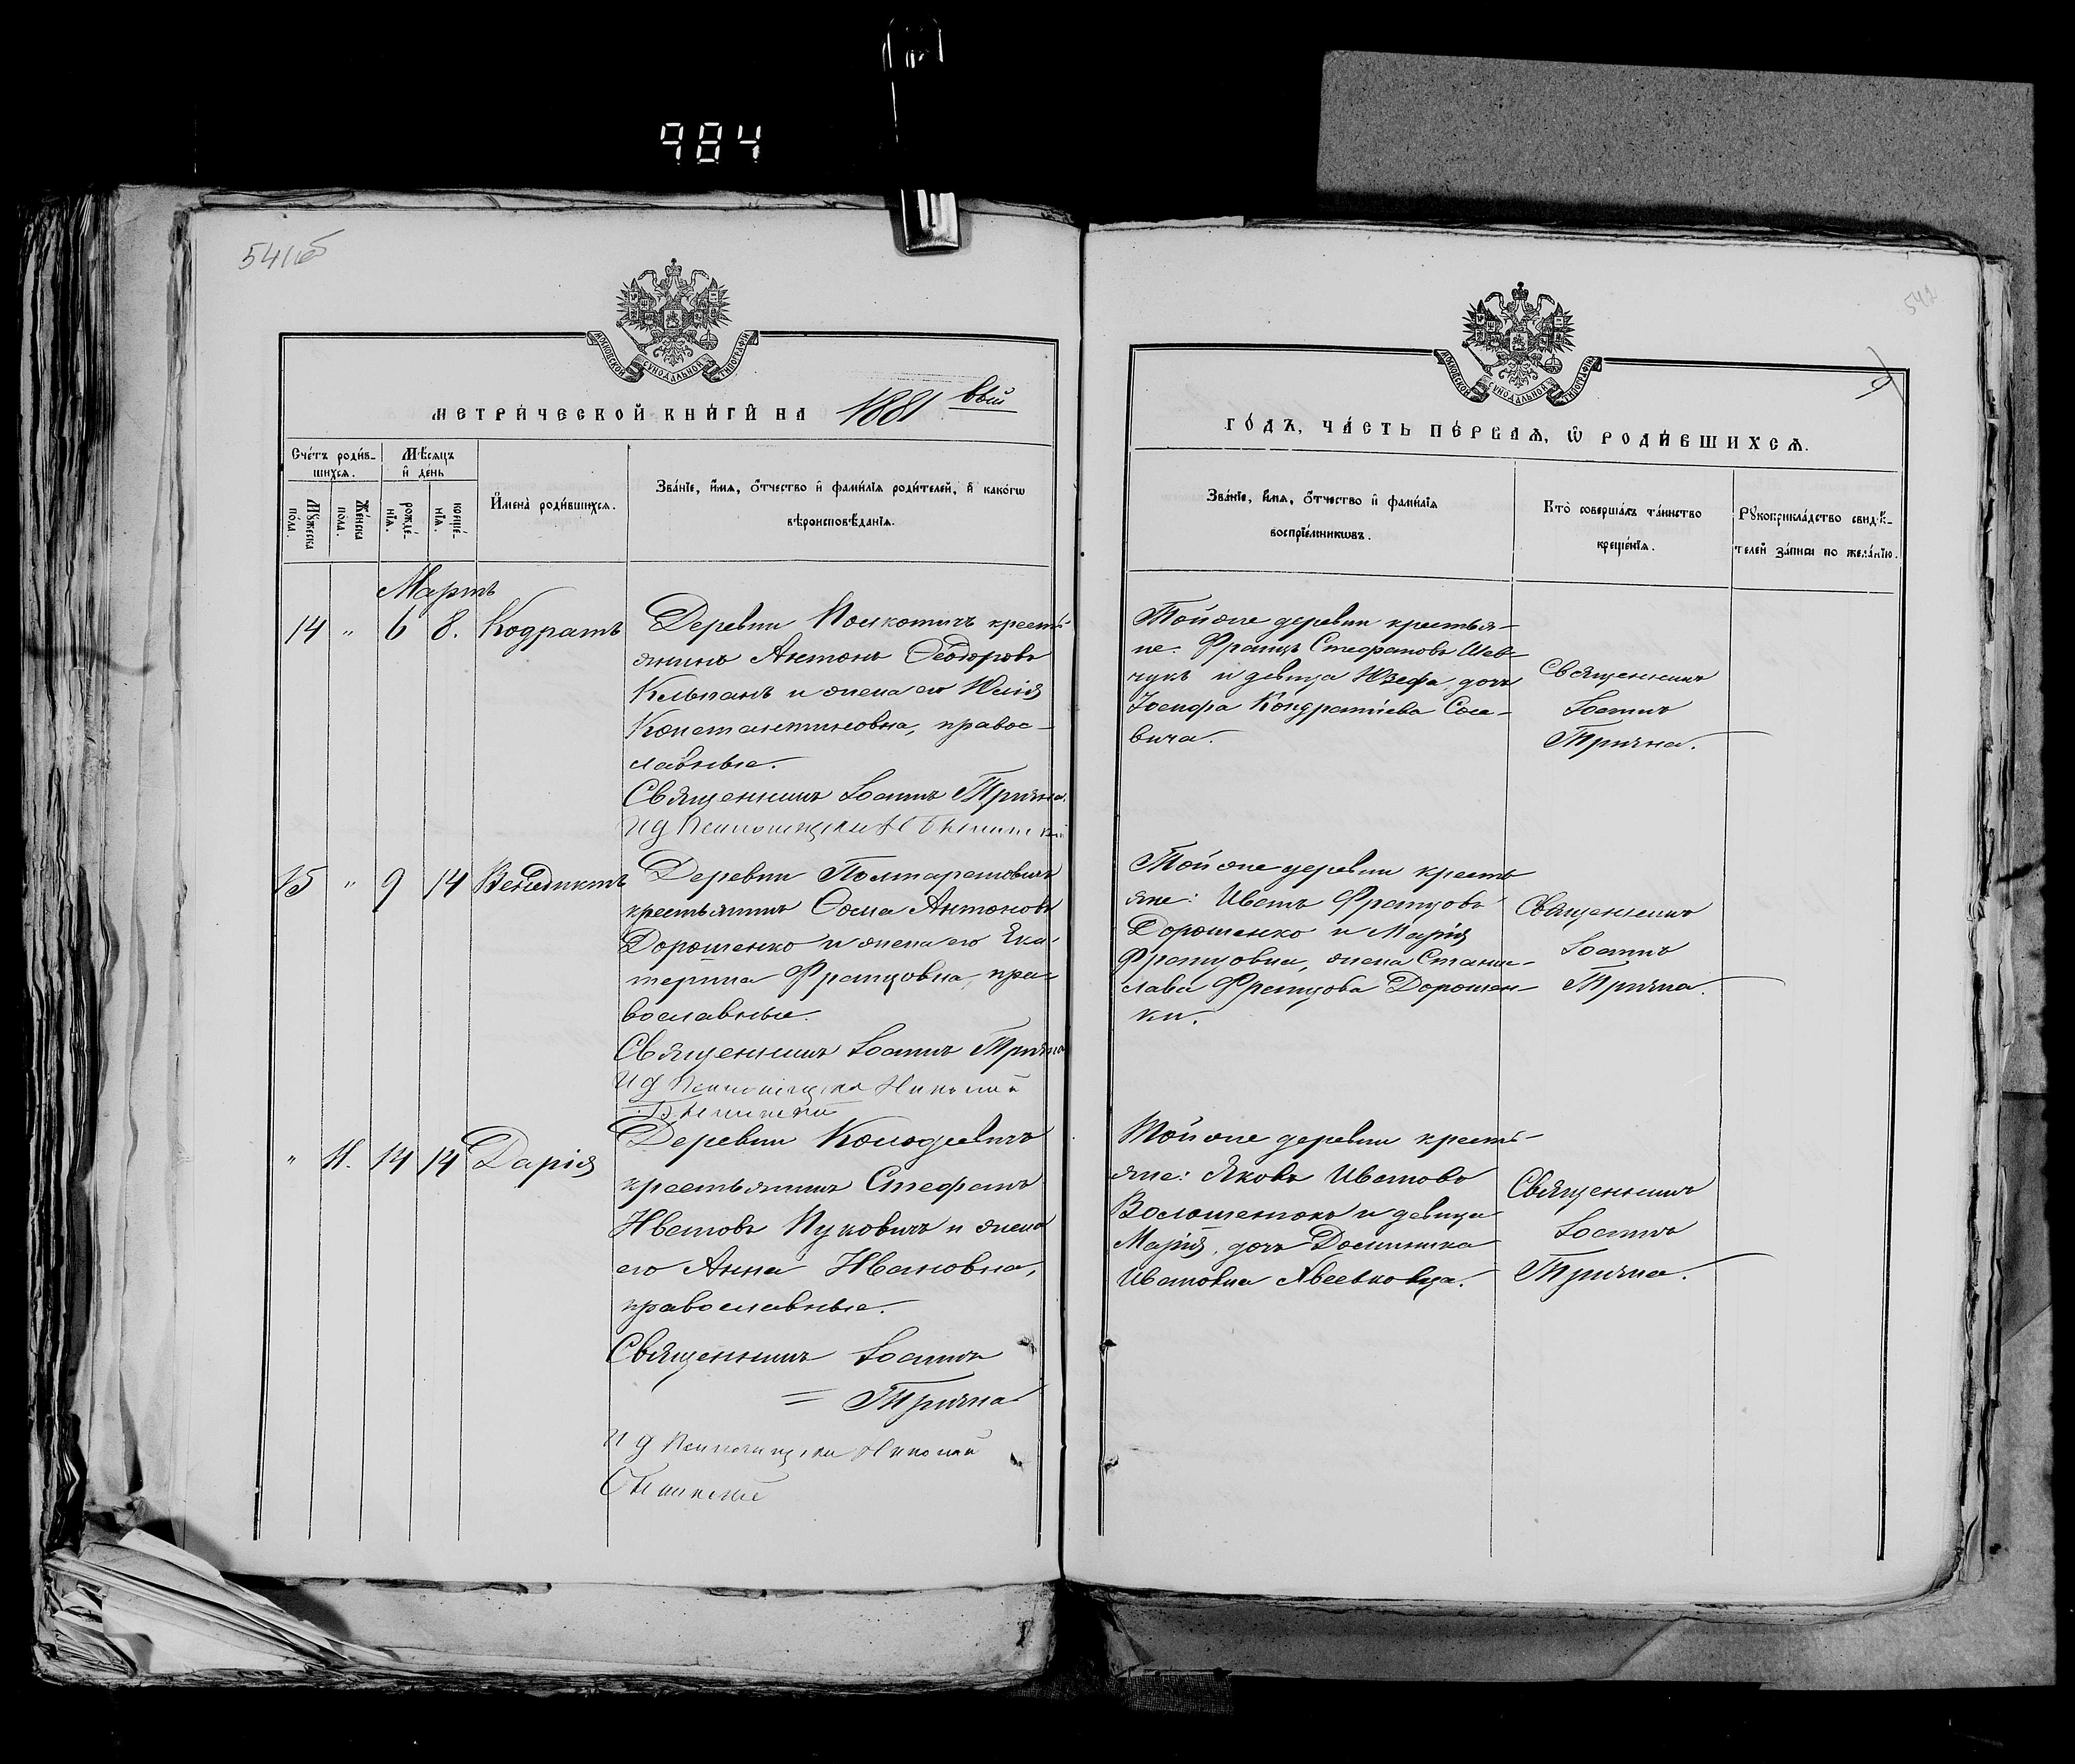 984
541об
542
МОСКОВСКОЙ СѴНОДАЛЬНОЙ ТИПОГРАФІИ
МЕТРИ́ЧЕСКОЙ КНИ́ГИ НА 1881 вый
Сче́тъ роди́в-
шихся.
Мѣ́сяцъ
и҆ де́нь
Мꙋ́жеска
по́ла.
Же́нска
по́ла.
рожде́-
нїя.
креще́-
нїя.
И҆мена̀ роди́вшихся.
Зва́нїе, и҆́мя, ѻ҆́тчество и҆ фами́лїя роди́телей, и҆ како́гѡ
вѣроисповѣ́данїя.
Мартъ
14 " 6 8. Кодратъ
Деревни крестъ-
янинъ Антонъ Ѳеодоровъ
и жена его Юлія
Константиновна, правос-
лавные.
Священникъ Іоаннъ
И д Псаломщика
15 " 9 14 Венедиктъ
Деревни Полтарановичъ
крестьянинъ Ѳома Антоновъ
Дорошенко и жена его Ека-
терина Францовна, пра-
вославные.
Священникъ Іоаннъ
И д Псаломщика Николай
" 11. 14 14 Дарія
Деревни Колодіевичъ
крестьянинъ Стефанъ
Ивановъ Пуковичъ и жена
его Анна Ивановна,
православные.
Священникъ Іоаннъ
И д Псаломщика Николай
МОСКОВСКОЙ СѴНОДАЛЬНОЙ ТИПОГРАФІИ
ГО́ДЪ, ЧА́СТЬ ПЕ́РВАЯ, Ѡ҆ РОДИ́ВШИХСЯ.
Зва́нїе, и҆́мя, ѻ҆́тчество и҆ фами́лїя
воспрїе́мникѡвъ.
Кто̀ соверша́лъ та́инство
креще́нїя.
Рꙋкоприкла́дство свидѣ́-
телей за́писи по жела́нїю.
Той же деревни крестья-
не: Францъ Стефановъ Шев-
чукъ и девица Юзефа, дочь
Іосифа Кондратіева Сав-
вича.
Священникъ
Іоаннъ
Той же деревни кресть
яне: Иванъ Францовъ
Дорошенко и Марія
Францовна, жена Стани-
слава Францова Дорошен-
ки.
Священникъ
Іоаннъ
Той же деревни кресть-
яне: Яковъ Ивановъ
Волошенюкъ и девица
Марія, дочь Доминика
Священникъ
Іоаннъ